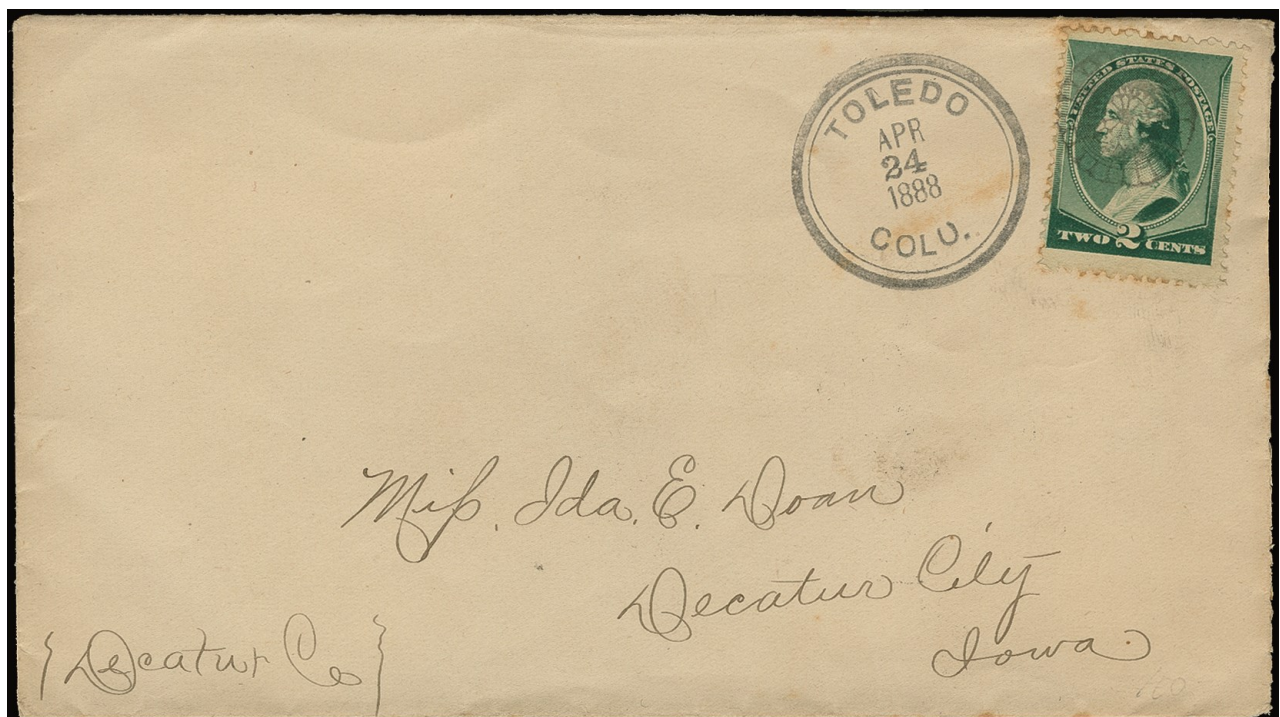 TOLEDO
APR
24
1888
COLO.
UNITED STATES POSTAGE
TWO 2 CENTS
Miss. Ida. E. Doan
Decatur City
Iowa.
{Decatur Co}